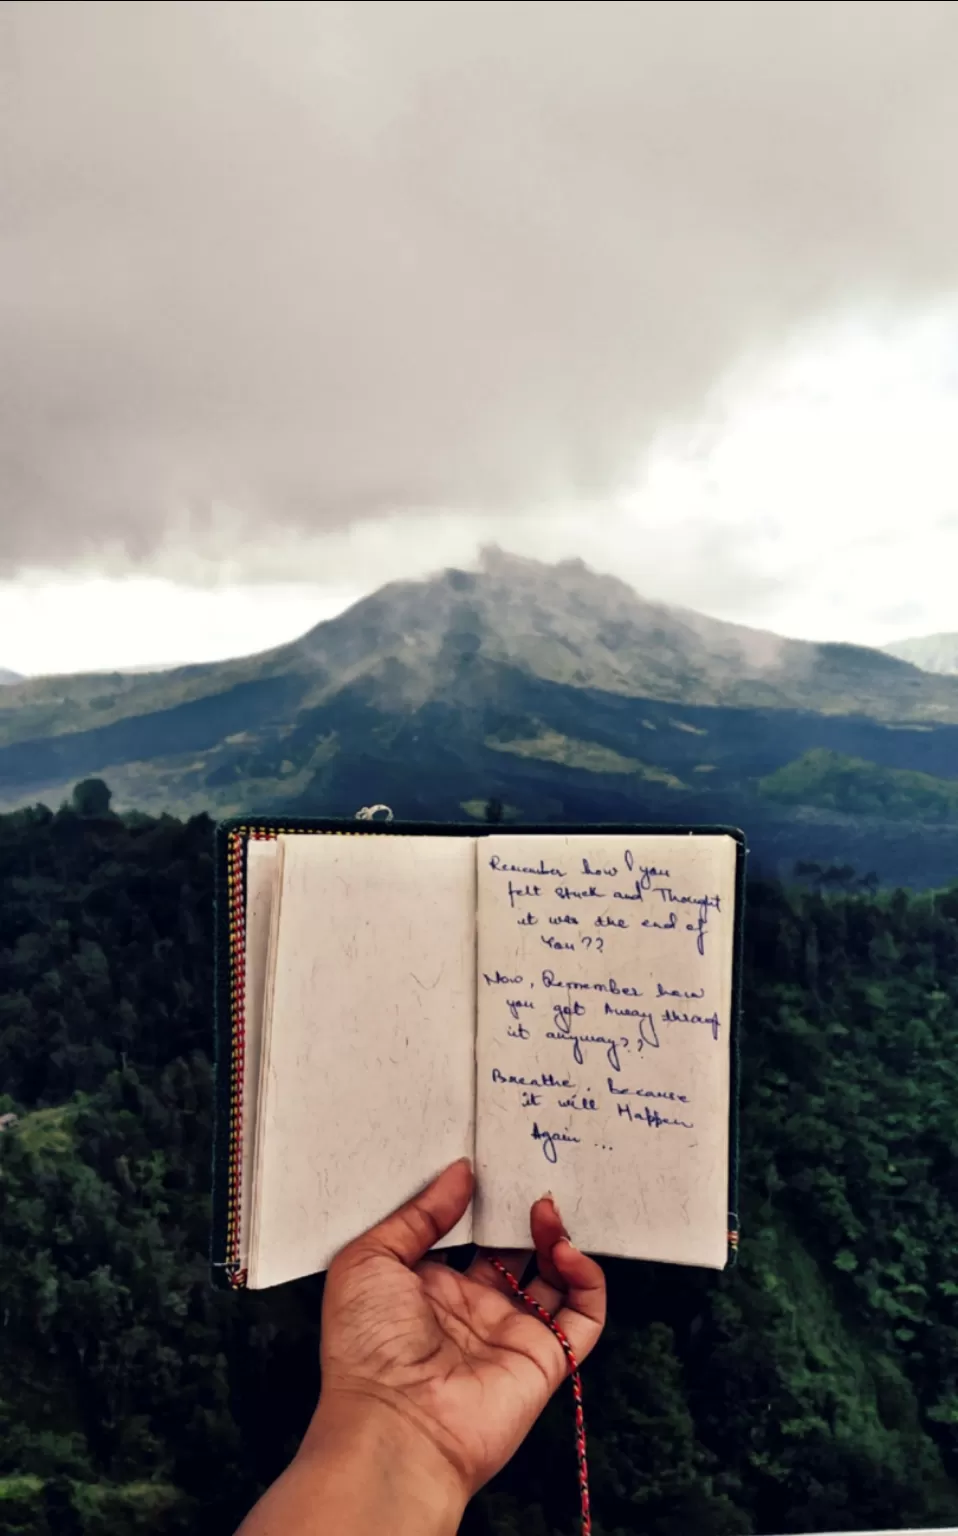 Remember how you
felt stuck and Thought
it was the end of
You??
Now, Remember how
you got Away through
it anyway??
Breathe, because
it will Happen
Again ...